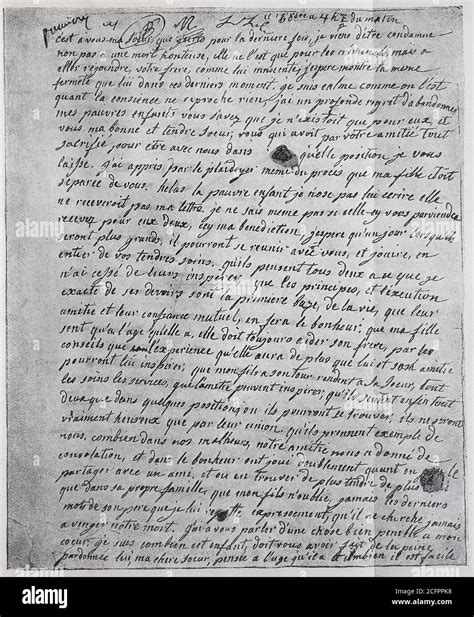 ce 8bre a 4 h ½ du matin
c'est a vous ma soeur, que j'ecris pour la derniere fois, je viens d'etre condamné
non pas a une mort honteuse, elle ne l'est que pour les criminels, mais a
aller rejoindre, votre frere, comme lui innocente, j'espere montré la meme
fermeté que lui dans ces derniers moment. je suis calme comme on l'est
quant la consience ne reproche rien, j'ai un profonde regret d'abandonner
mes pauvres enfants vous savez que je n'existoit que pour eux et
vous ma bonne et tendre soeur, vous qui avoit par votre amitiee tout
sacrifie pour etre avec nous dans quelle position je vous
laisse. j'ai appris par le plaidoyer meme du proces que ma fille etoit
separee de vous. helas la pauvre enfant je n'ose pas lui ecrire elle
ne receveroit pas ma lettre, je ne sais meme pas se celle-cy vous parviendra
recevez pour eux deux, icy ma benediction, j'espere qu'un jour lorsqu'ils
seront plus grands, il pourront se reunir avec vous, et jouire, en
entier de vos tendres soins. qu'ils pensent tous deux a ce que je
n'ai cessé de leurs inspirer que les principes, et l'execution
exacte de ses devoirs sont la premiere base, de la vie, que leur
amitié et leur confiance mutuel, en fera le bonheur. que ma fille
sent qu'a l'age qu'elle a, elle doit toujours aider son frere, par les
conseils que l'experience qu'elle aura de plus que lui et son amitié
pourront lui inspirer, que mon fils a son tour rendent a sa soeur, tout
les soins les services, que l'amitié peuvent inspirer, qu'ils sentent enfin tout
deux que dans quelques positions ou ils pourront se trouver, ils ne seront
vraiment heureux que par leur union. qu'ils prennent exemple de
nous, combien dans nos malheurs, notre amitié nous a donné de
consolation, et dans le bonheur ont joui doublement quant on peut le
partager avec un ami, et ou en trouver de plus tendre de plus
que dans sa propre famille, que mon fils n'oublie, jamais les derniers
mot de son pere que je lui repette expressement, qu'il ne cherche jamais
a venger notre mort, j'ai a vous parler d'une chose bien penible a mon
coeur. je sais combien cet enfant, doit vous avoir fait de la peine
pardonnée lui, ma chere soeur, pensée a l'age qu'il a et combien il est facile
alamy
Image ID: 2CFPPK8
www.alamy.com